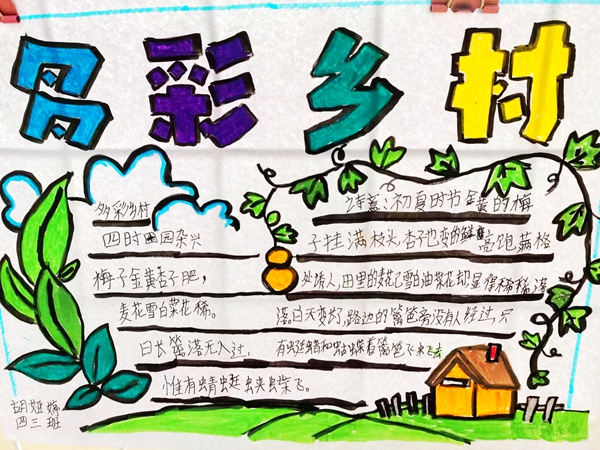 多彩乡村
多彩乡村
四时田园杂兴
梅子金黄杏子肥，
麦花雪白菜花稀。
日长篱落无人过，
惟有蜻蜓蛱蝶飞。
诗意：初夏时节金黄的梅
子挂满枝头，杏子也变的鲜亮饱满
田里的麦花雪白油菜花却显得稀稀落
落白天变长了，路边的篱笆旁没有人经过，只
有蜓蜻和蛱蝶着篱笆飞来飞去
胡
四三班